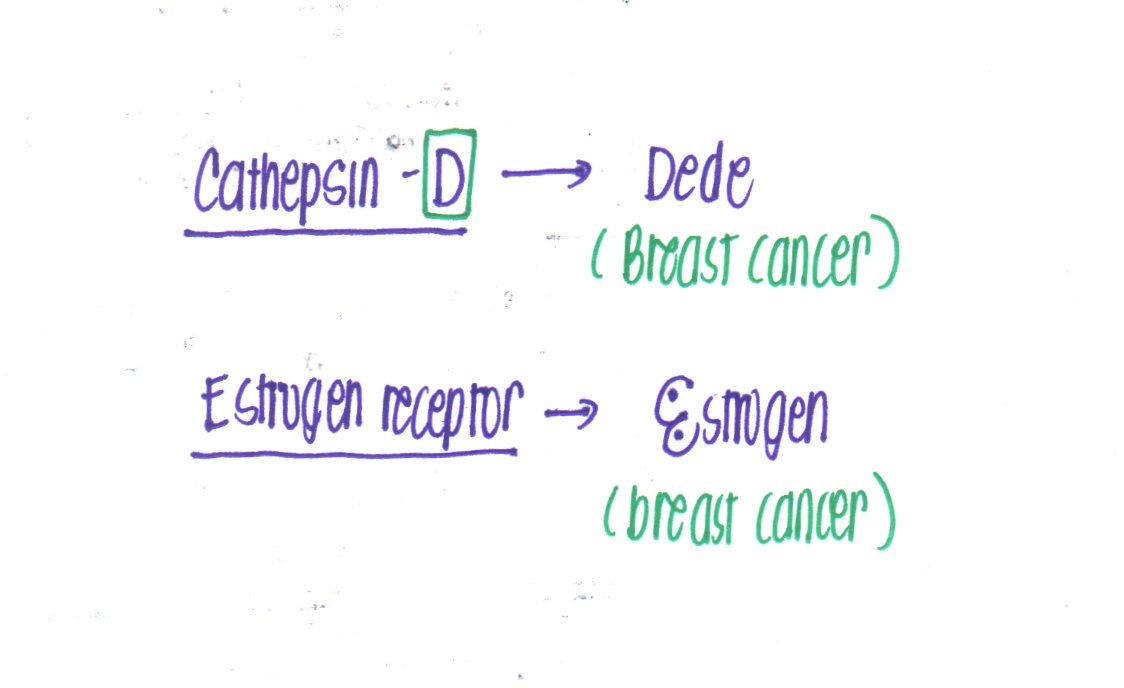 Cathepsin - D → Dede
(Breast cancer)
Estrogen receptor → Estrogen
(breast cancer)